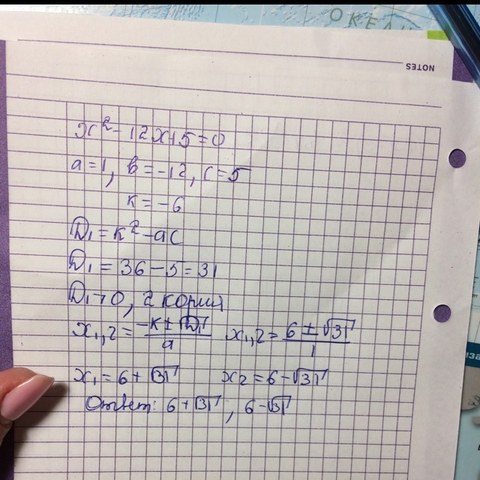 ОКЕА
NOTES
x² - 12x+5=0
a=1, в=-12, c=5
к=-6
D₁=к²-ac
D₁=36-5=31
D₁>0, 2 корня
x₁,₂=(-к±√D₁)/a x₁,₂=(6±√31)/1
x₁=6+√31 x₂=6-√31
Ответ: 6+√31; 6-√31